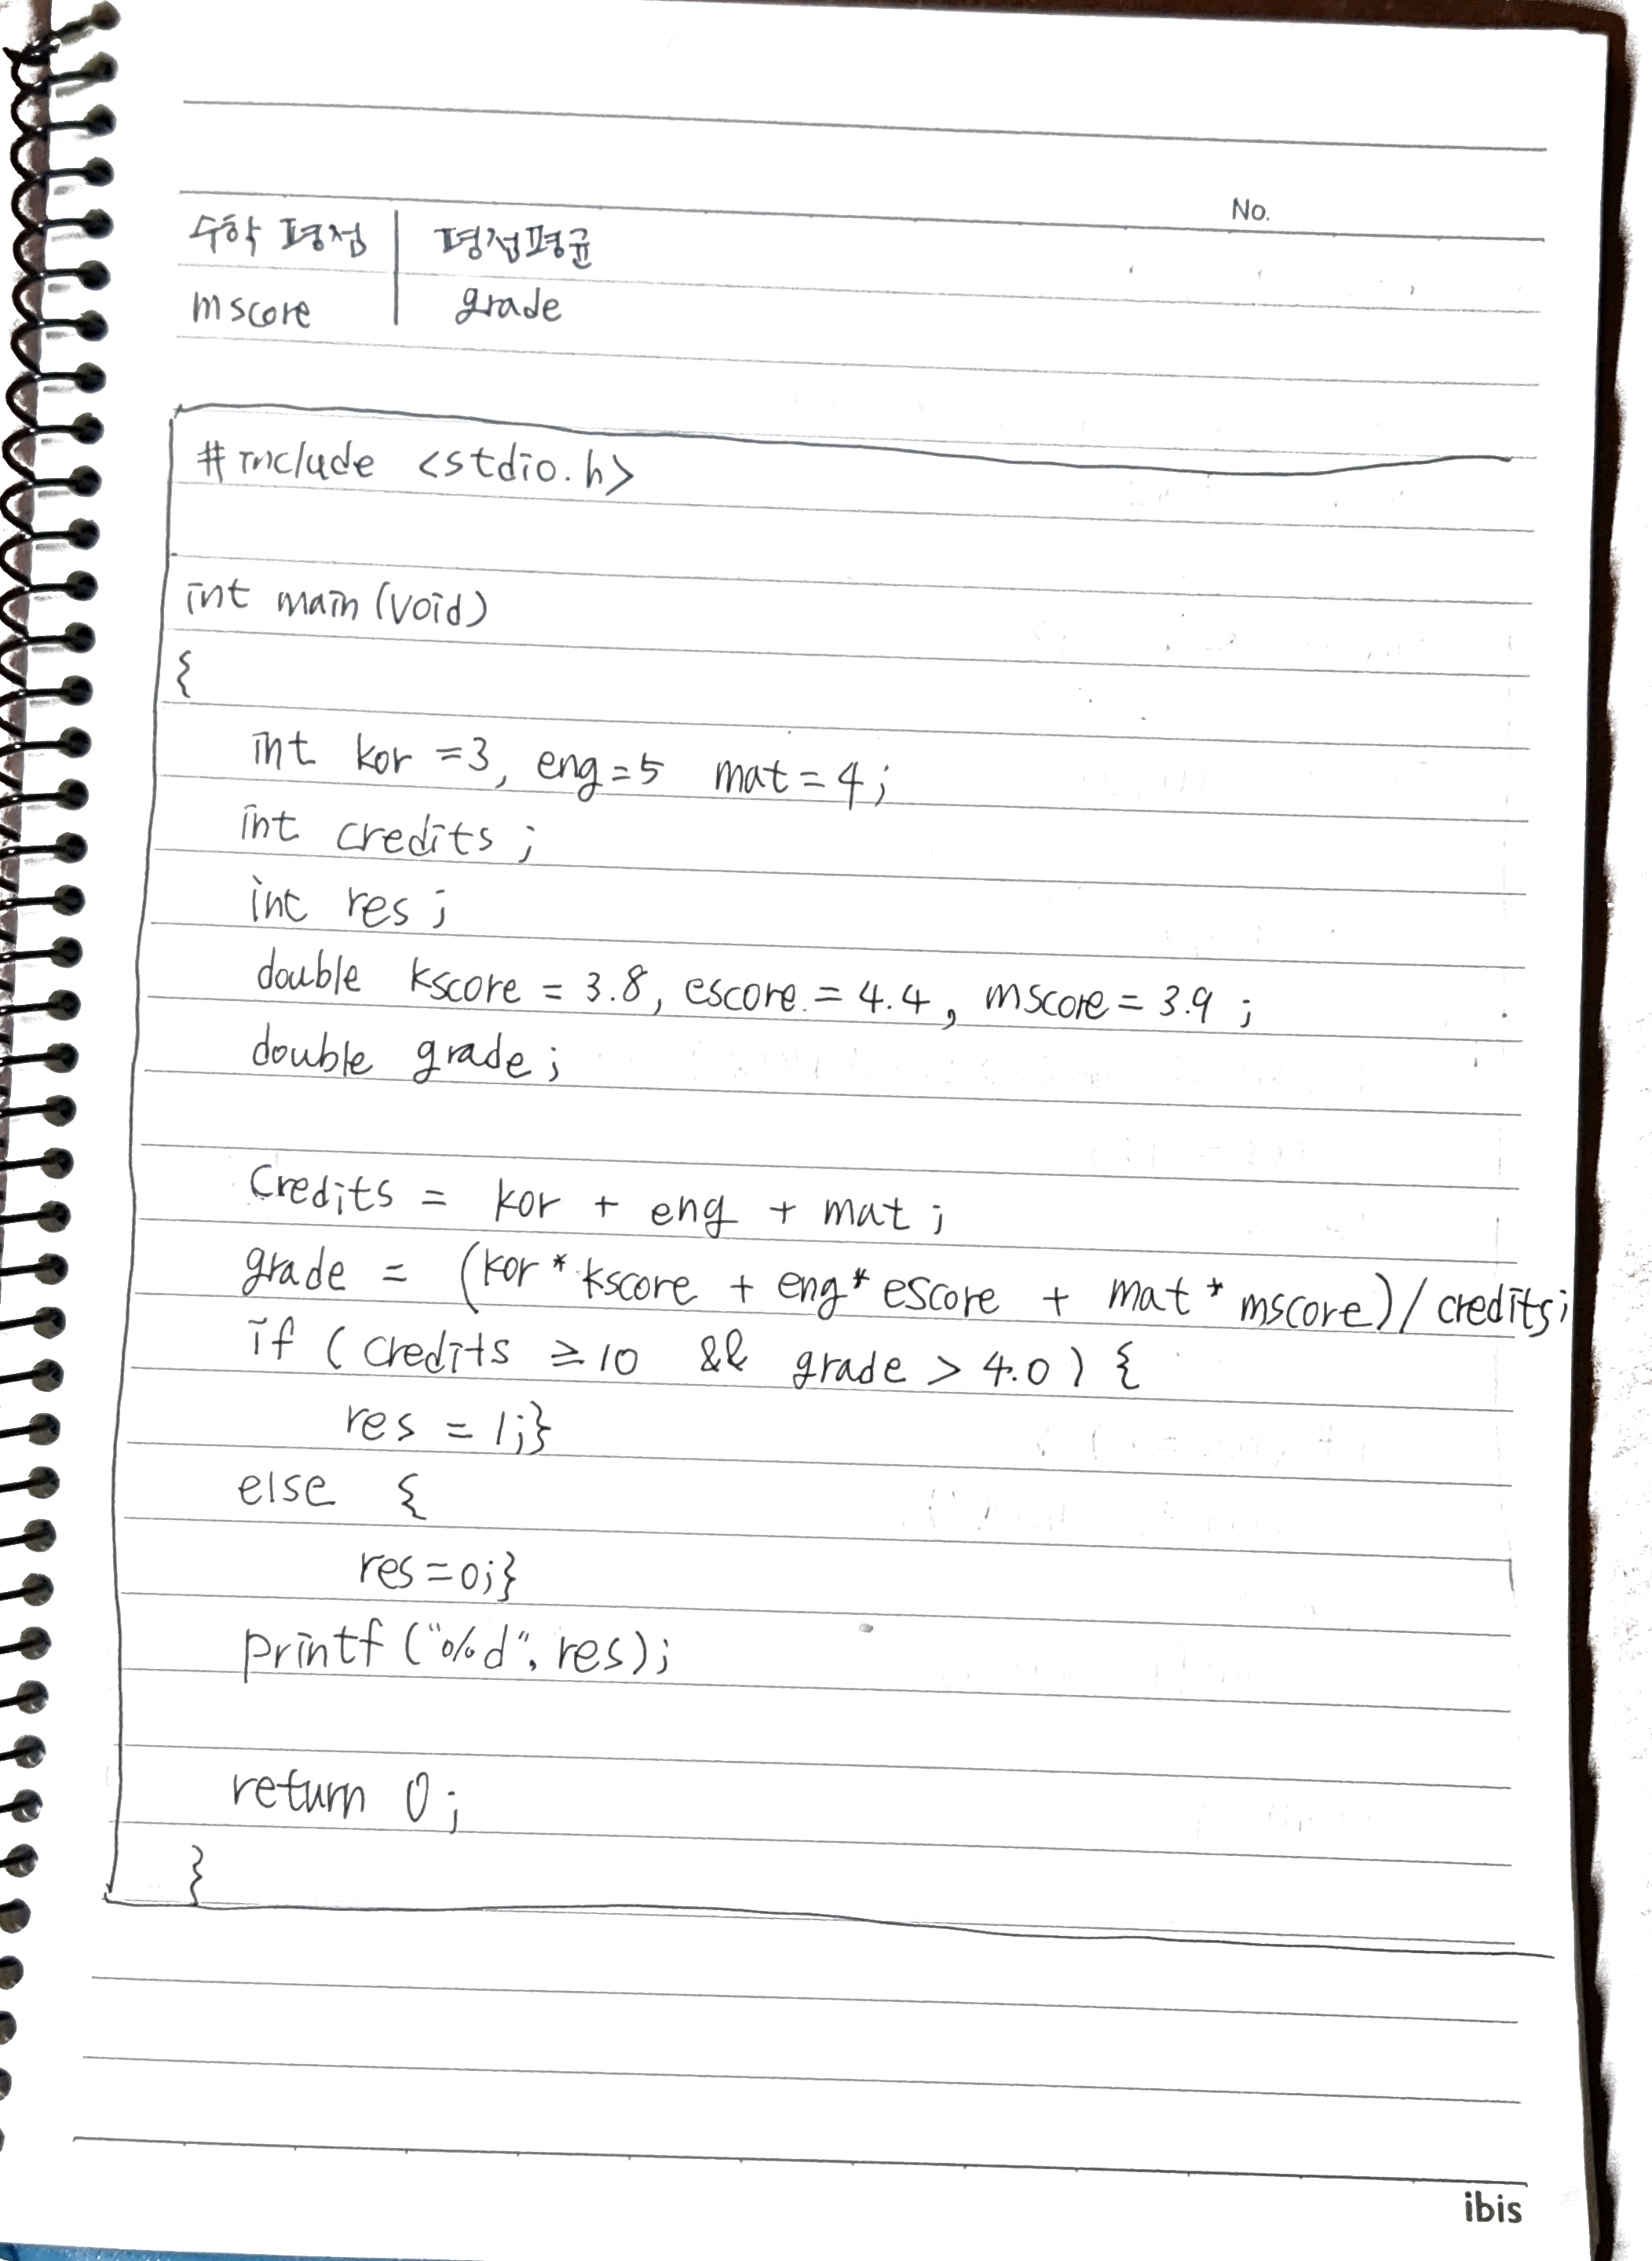 No.
수학 평점 평점평균
mscore grade
#include <stdio.h>
int main (void)
{
int kor =3, eng=5 mat=4;
int credits ;
int res ;
double kscore = 3.8, escore = 4.4, mscore = 3.9 ;
double grade ;
Credits = kor + eng + mat ;
grade = (kor * kscore + eng * escore + mat * mscore) / credits;
if ( credits ≥ 10 && grade > 4.0 ) {
res = 1;}
else {
res=0;}
printf ("%d", res);
return 0 ;
}
ibis